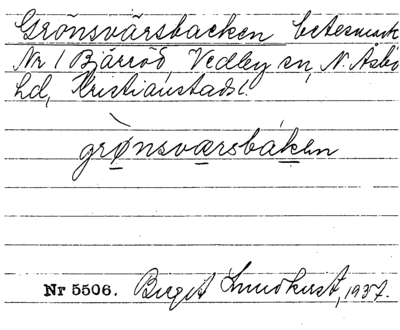 Grönsvärsbacken betesmark
Nr 1 Bjärröd, Vedby sn, N. Åsbo
hd, Kristianstads l.
grònsværsbáken
Nr 5506. Birgit Lundkvist, 1937.